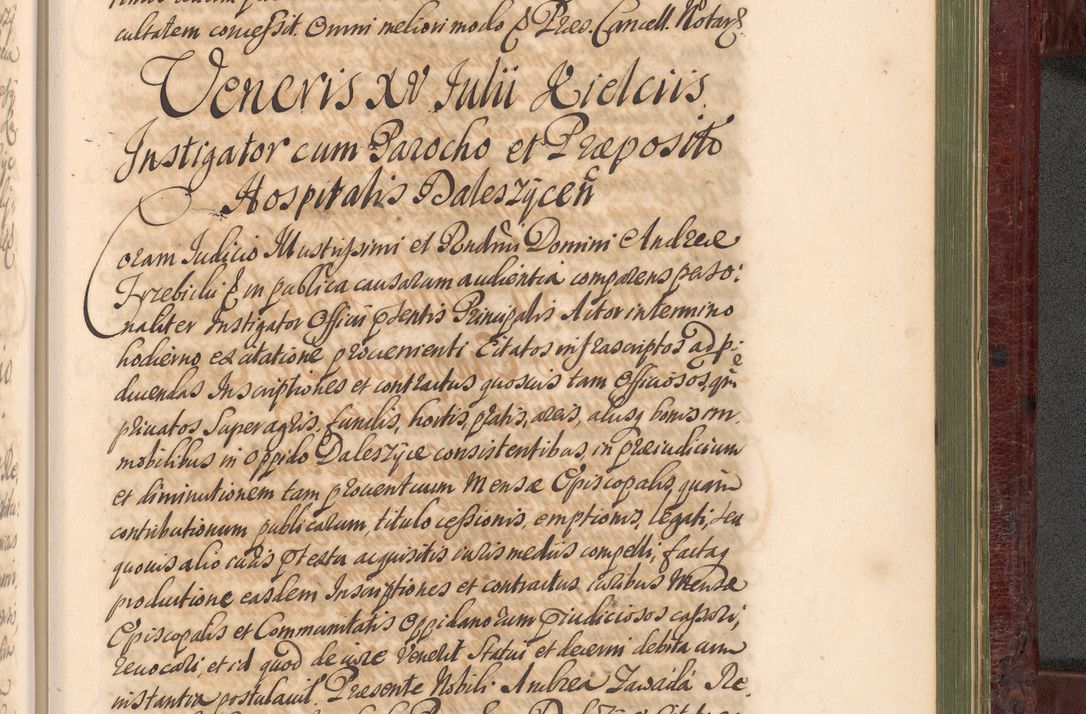 cultatem concessit. Omni meliori modo Præs. Cancell. Notar
Veneris XV Julii Kielciis
Instigator cum Parocho et Præposito
Hospitalis Daleszÿceñ
Coram Judicio Illustrissimi et Rndmi Domini Andreæ
Trzebicki Eppi in publica causarum audientia comparens perso:
naliter Instigator Officii pntis Principalis Actor in termino
hodierno ex citatione provenienti Citatos infrascriptos ad p:
ducendas Inscriptiones et contractus quosvis tam Officiosos, qm
privatos super agris, fundis, hortis, pratis, areis, aliisq bonis im
mobilibus in oppido Daleszÿce consistentibus, in præiudicium
et diminutionem tam proventuum Mensæ Episcopalis, quàm
contributionum publicarum, titulo cessionis, emptionis, legati, seu
quovis alio iuris prtextu acquisitis iuris mediis compelli, factaq
productione easdem Inscriptiones et contractus iuribus Mensæ
Episcopalis et Communitatis Oppidanorum præiudiciosos cassari,
revocari, et id quod de iure venerit statui et decerni debita cum
instantia postulavit. Præsente Nobili Andrea Zawada Re